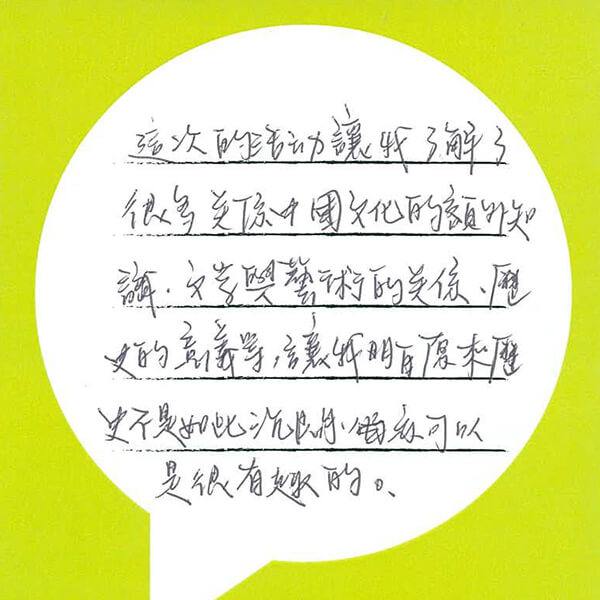 這次的活动讓我了解了
很多关係中國文化的額外知
識,文学與藝術的关係、歷
史的意義等,讓我明白原來歷
史不是如此沉悶,可以
是很有趣的。